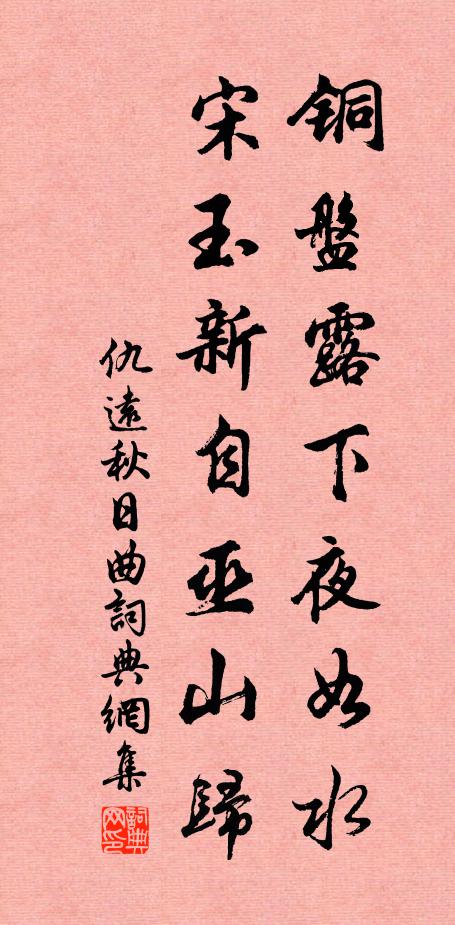 铜盤露下夜如水
宋玉新自巫山歸
仇遠秋日曲詞典網集
詞典网印